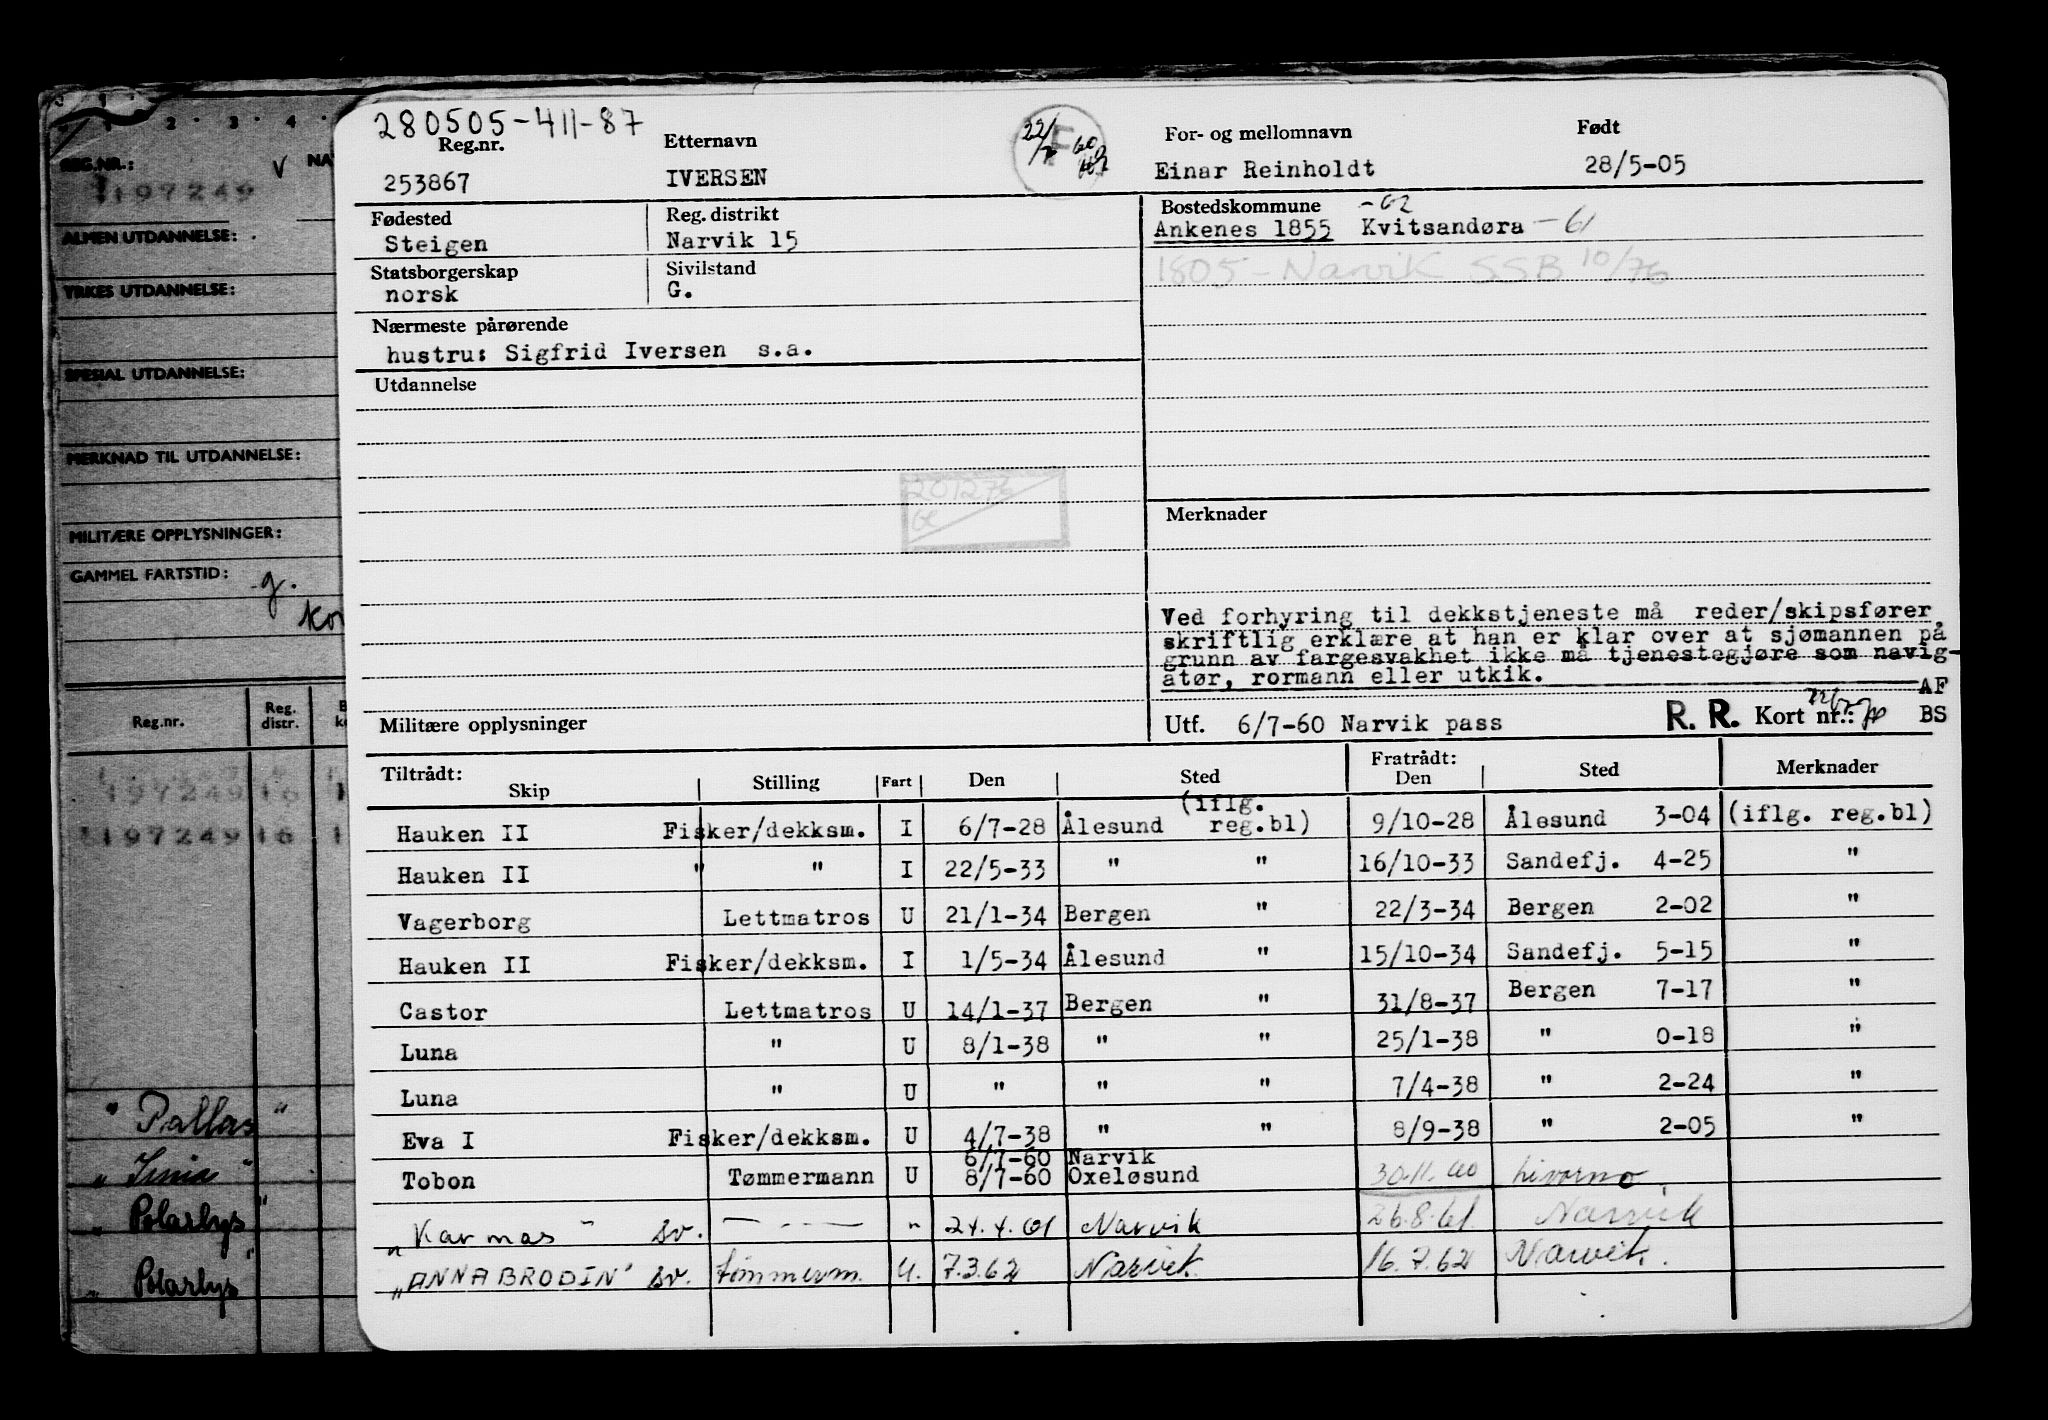 280505-411-87
Reg.nr. Etternavn For- og mellomnavn Født
253867 IVERSEN Einar Reinholdt 28/5-05
Fødested Reg. distrikt Bostedskommune -62
Steigen Narvik 15 Ankenes 1855 Kvitsandøra -61
1805 - Narvik SSB 10/76
Statsborgerskap Sivilstand
norsk G.
Nærmeste pårørende
hustru: Sigfrid Iversen s.a.
Utdannelse
201276
Merknader
Ved forhyring til dekkstjeneste må reder/skipsfører
skriftlig erklære at han er klar over at sjømannen på
grunn av fargesvakhet ikke må tjenestegjøre som navig-
atør, rormann eller utkik.
AF
Militære opplysninger Utf. 6/7-60 Narvik pass R. R. Kort nr.: BS
Tiltrådt: Skip Stilling Fart Den Sted Fratrådt: Den Sted Merknader
Hauken II Fisker/dekksm. I 6/7-28 Ålesund (iflg. reg.bl) 9/10-28 Ålesund 3-04 (iflg. reg.bl)
Hauken II " " I 22/5-33 " " 16/10-33 Sandefj. 4-25 "
Vagerborg Lettmatros U 21/1-34 Bergen " 22/3-34 Bergen 2-02 "
Hauken II Fisker/dekksm. I 1/5-34 Ålesund " 15/10-34 Sandefj. 5-15 "
Castor Lettmatros U 14/1-37 Bergen " 31/8-37 Bergen 7-17 "
Luna " U 8/1-38 " " 25/1-38 " 0-18 "
Luna " U " " " 7/4-38 " 2-24 "
Eva I Fisker/dekksm. U 4/7-38 " " 8/9-38 " 2-05 "
6/7-60 Narvik
Tobon Tømmermann U 8/7-60 Oxeløsund 30.11.60 Livorno
"Karmas" sv. — — " 24.4.61 Narvik 26.8.61 Narvik
"ANNA BRODIN" sv. tømmerm. U. 7.3.62 Narvik 16.7.62 Narvik.
1 2 3 4
REG.NR.: V NA
197249
ALMEN UTDANNELSE:
YRKES UTDANNELSE:
SPESIAL UTDANNELSE:
MERKNAD TIL UTDANNELSE:
MILITÆRE OPPLYSNINGER:
GAMMEL FARTSTID: g.
Kon
Reg.nr. Reg. distr.
197249 16 1
197249 16 1
" Pallas "
" "
" Polarlys "
" Polarlys "